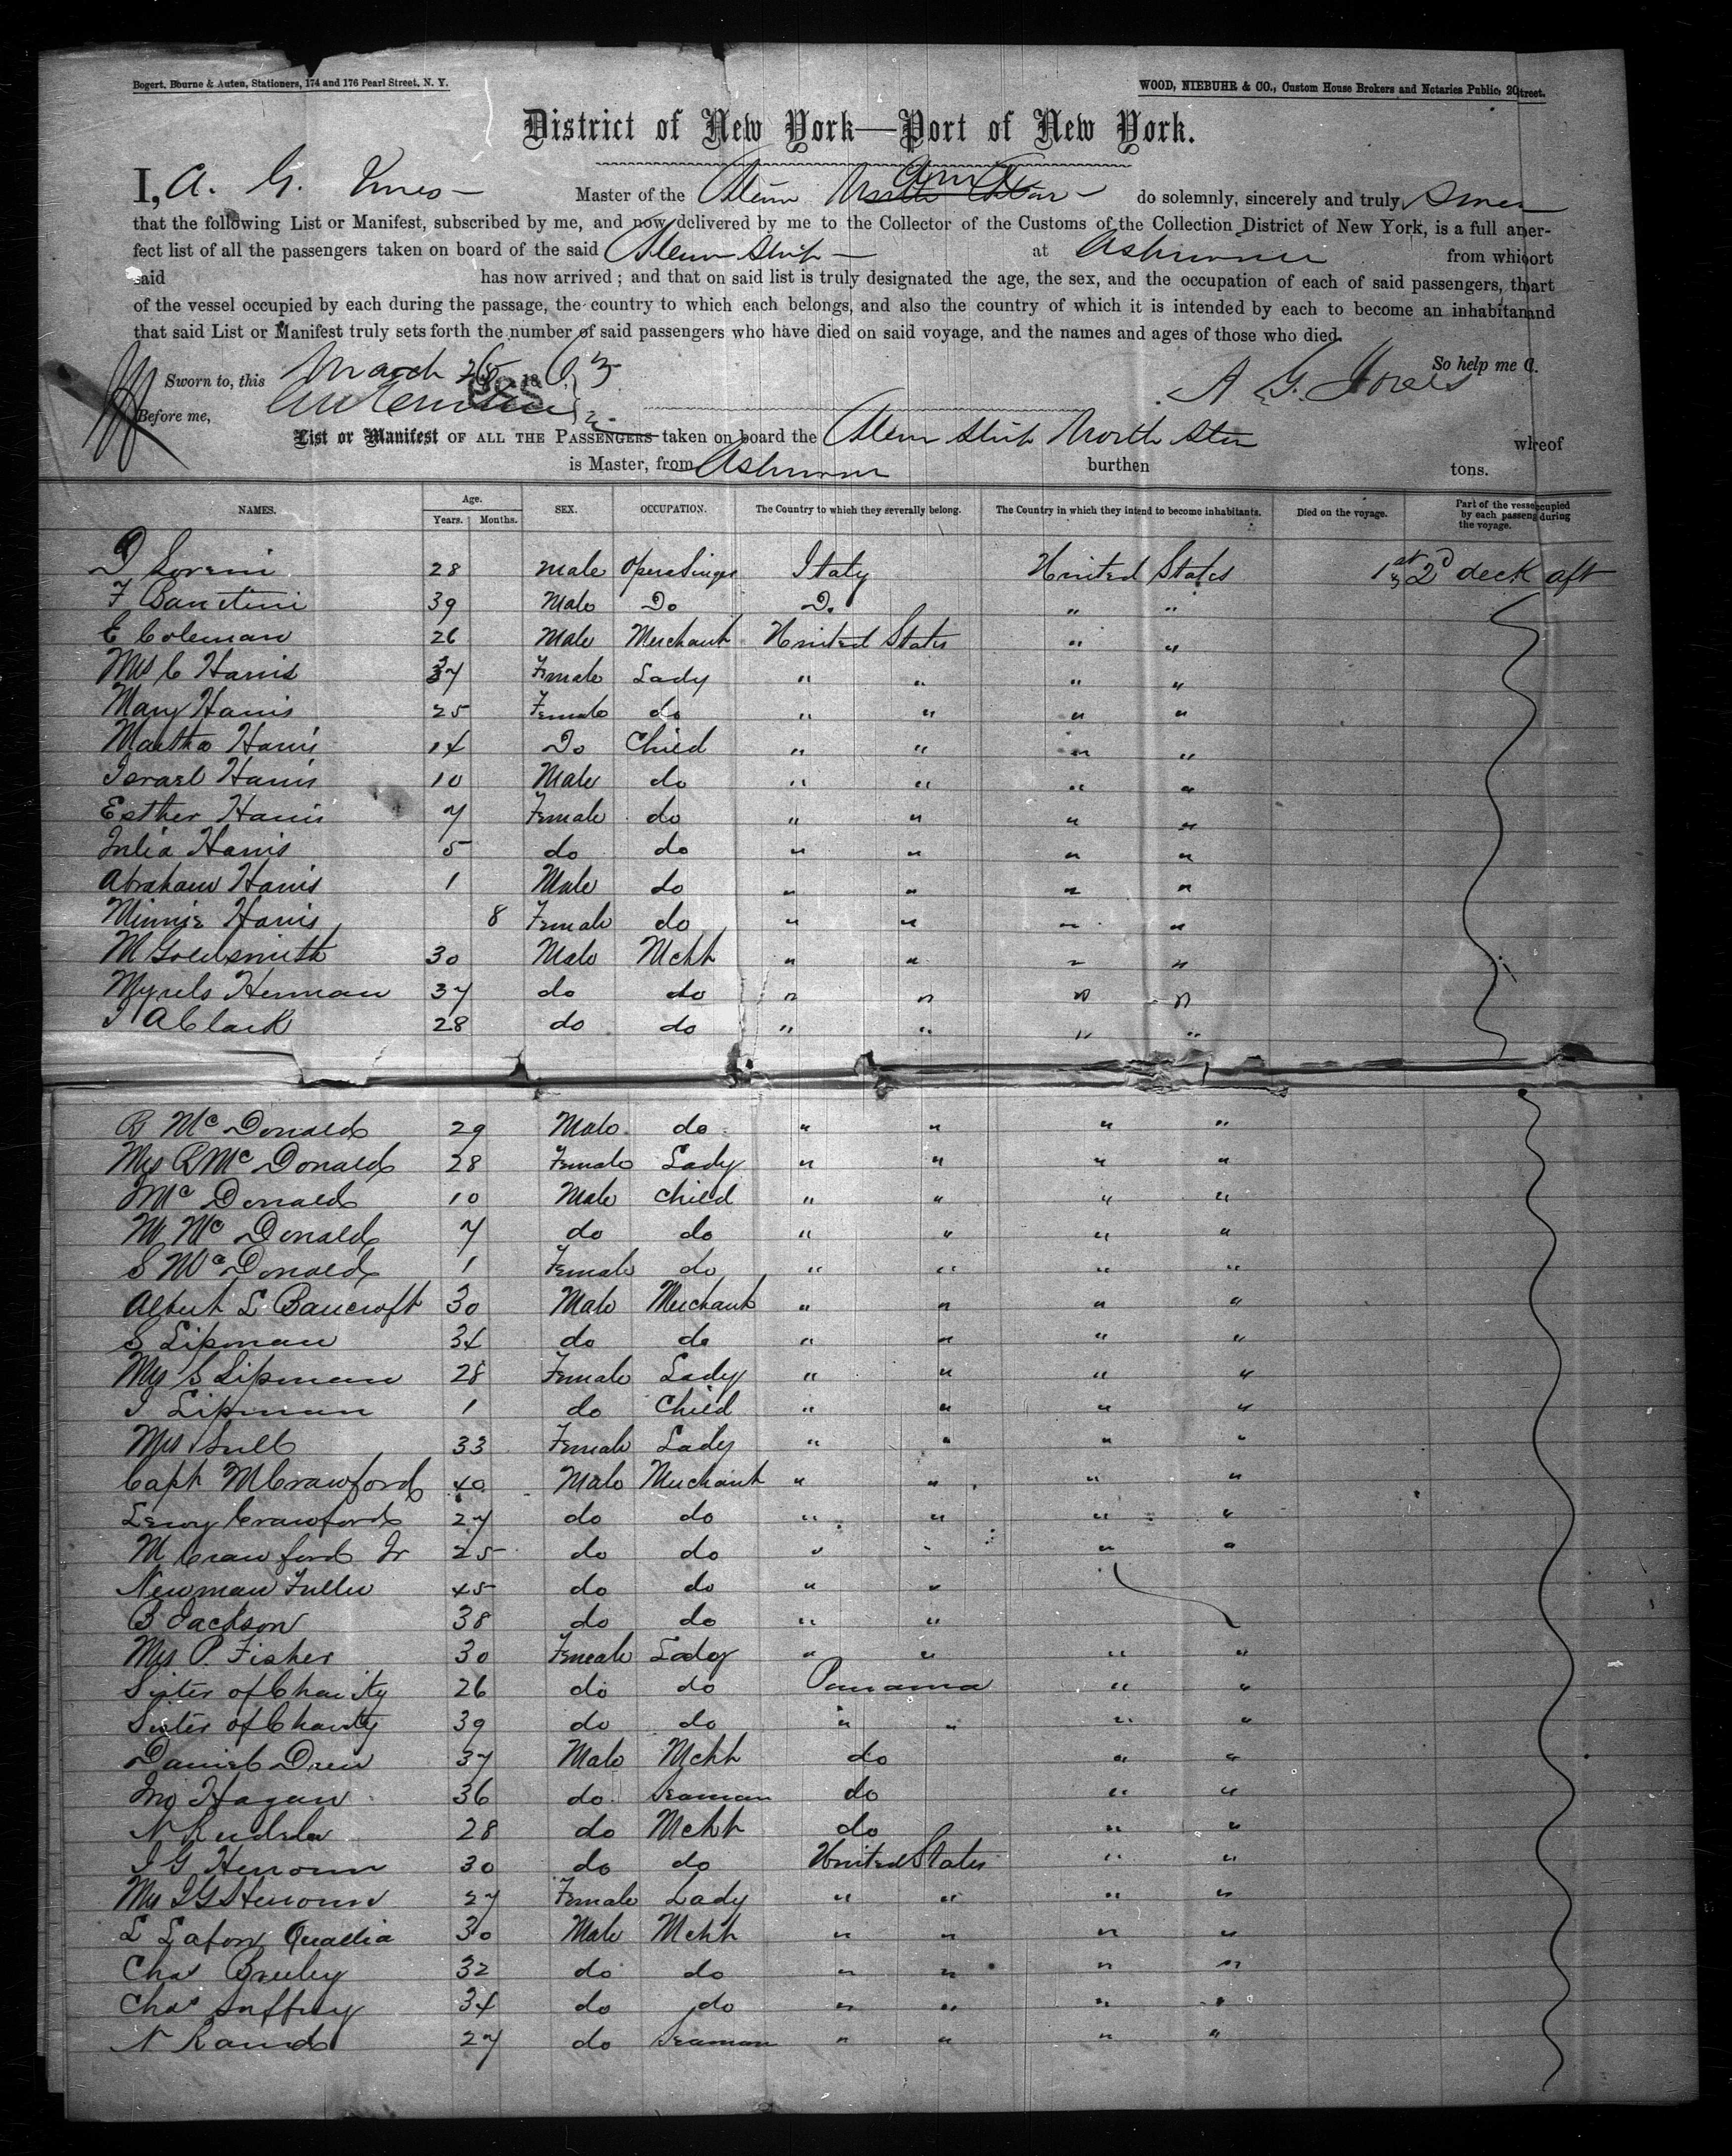 Bogert, Bourne & Auten, Stationers, 174 and 176 Pearl Street, N. Y.
WOOD, NIEBUHR & CO., Custom House Brokers and Notaries Public, 20 treet.
District of New York—Port of New York.
I, A. G. Jones Master of the Steam do solemnly, sincerely and truly swear
that the following List or Manifest, subscribed by me, and now delivered by me to the Collector of the Customs of the Collection District of New York, is a full a per-
fect list of all the passengers taken on board of the said Steam Ship at Aspinwall from whi ort
said has now arrived ; and that on said list is truly designated the age, the sex, and the occupation of each of said passengers, th art
of the vessel occupied by each during the passage, the country to which each belongs, and also the country of which it is intended by each to become an inhabitan and
that said List or Manifest truly sets forth the number of said passengers who have died on said voyage, and the names and ages of those who died.
So help me
Sworn to, this March 28 18 63 A. G. Jones
Before me,
List or Manifest OF ALL THE PASSENGERS taken on board the Steam Ship North Star w reof
is Master, from Aspinwall burthen tons.
NAMES. Age. Years. Months. SEX. OCCUPATION. The Country to which they severally belong. The Country in which they intend to become inhabitants. Died on the voyage. Part of the vesse cupied by each passeng during the voyage.
28 Male Opera Singer Italy United States 1st & 2d deck aft
39 Male Do Do " "
E Coleman 26 Male Merchant United States " "
Mrs C Harris 37 Female Lady " " " "
Mary Harris 25 Female do " " " "
Martha Harris 14 Do Child " " " "
Israel Harris 10 Male do " " " "
Esther Harris 7 Female do " " " "
Julia Harris 5 do do " " " "
Abraham Harris 1 Male do " " " "
Minnie Harris 8 Female do " " " "
M Goldsmith 30 Male Mcht " " " "
Herman 37 do do " " " "
A Clark 28 do do " " " "
R McDonald 29 Male do " " " "
Mrs R McDonald 28 Female Lady " " " "
McDonald 10 Male Child " " " "
M McDonald 7 do do " " " "
S McDonald 1 Female do " " " "
Albert L Bancroft 30 Male Merchant " " " "
S Lipman 34 do do " " " "
Mrs S Lipman 28 Female Lady " " " "
I Lipman 1 do Child " " " "
Mrs 33 Female Lady " " " "
Capt M Crawford 40 Male Merchant " " " "
Leroy Crawford 27 do do " " " "
M Crawford Jr 25 do do " " " "
Newman Fuller 45 do do " "
B Jackson 38 do do " "
Mrs P. Fisher 30 Female Lady " " " "
Sister of Charity 26 do do Panama " "
Sister of Charity 39 do do " " " "
Daniel Drew 37 Male Mcht do " "
Jno Hagan 36 do Seaman do " "
N 28 do Mcht do " "
30 do do United States " "
Mrs 27 Female Lady " " " "
30 Male Mcht " " " "
Chas 32 do do " " " "
Chas 34 do do " " " "
N Rand 27 do Seaman " " " "